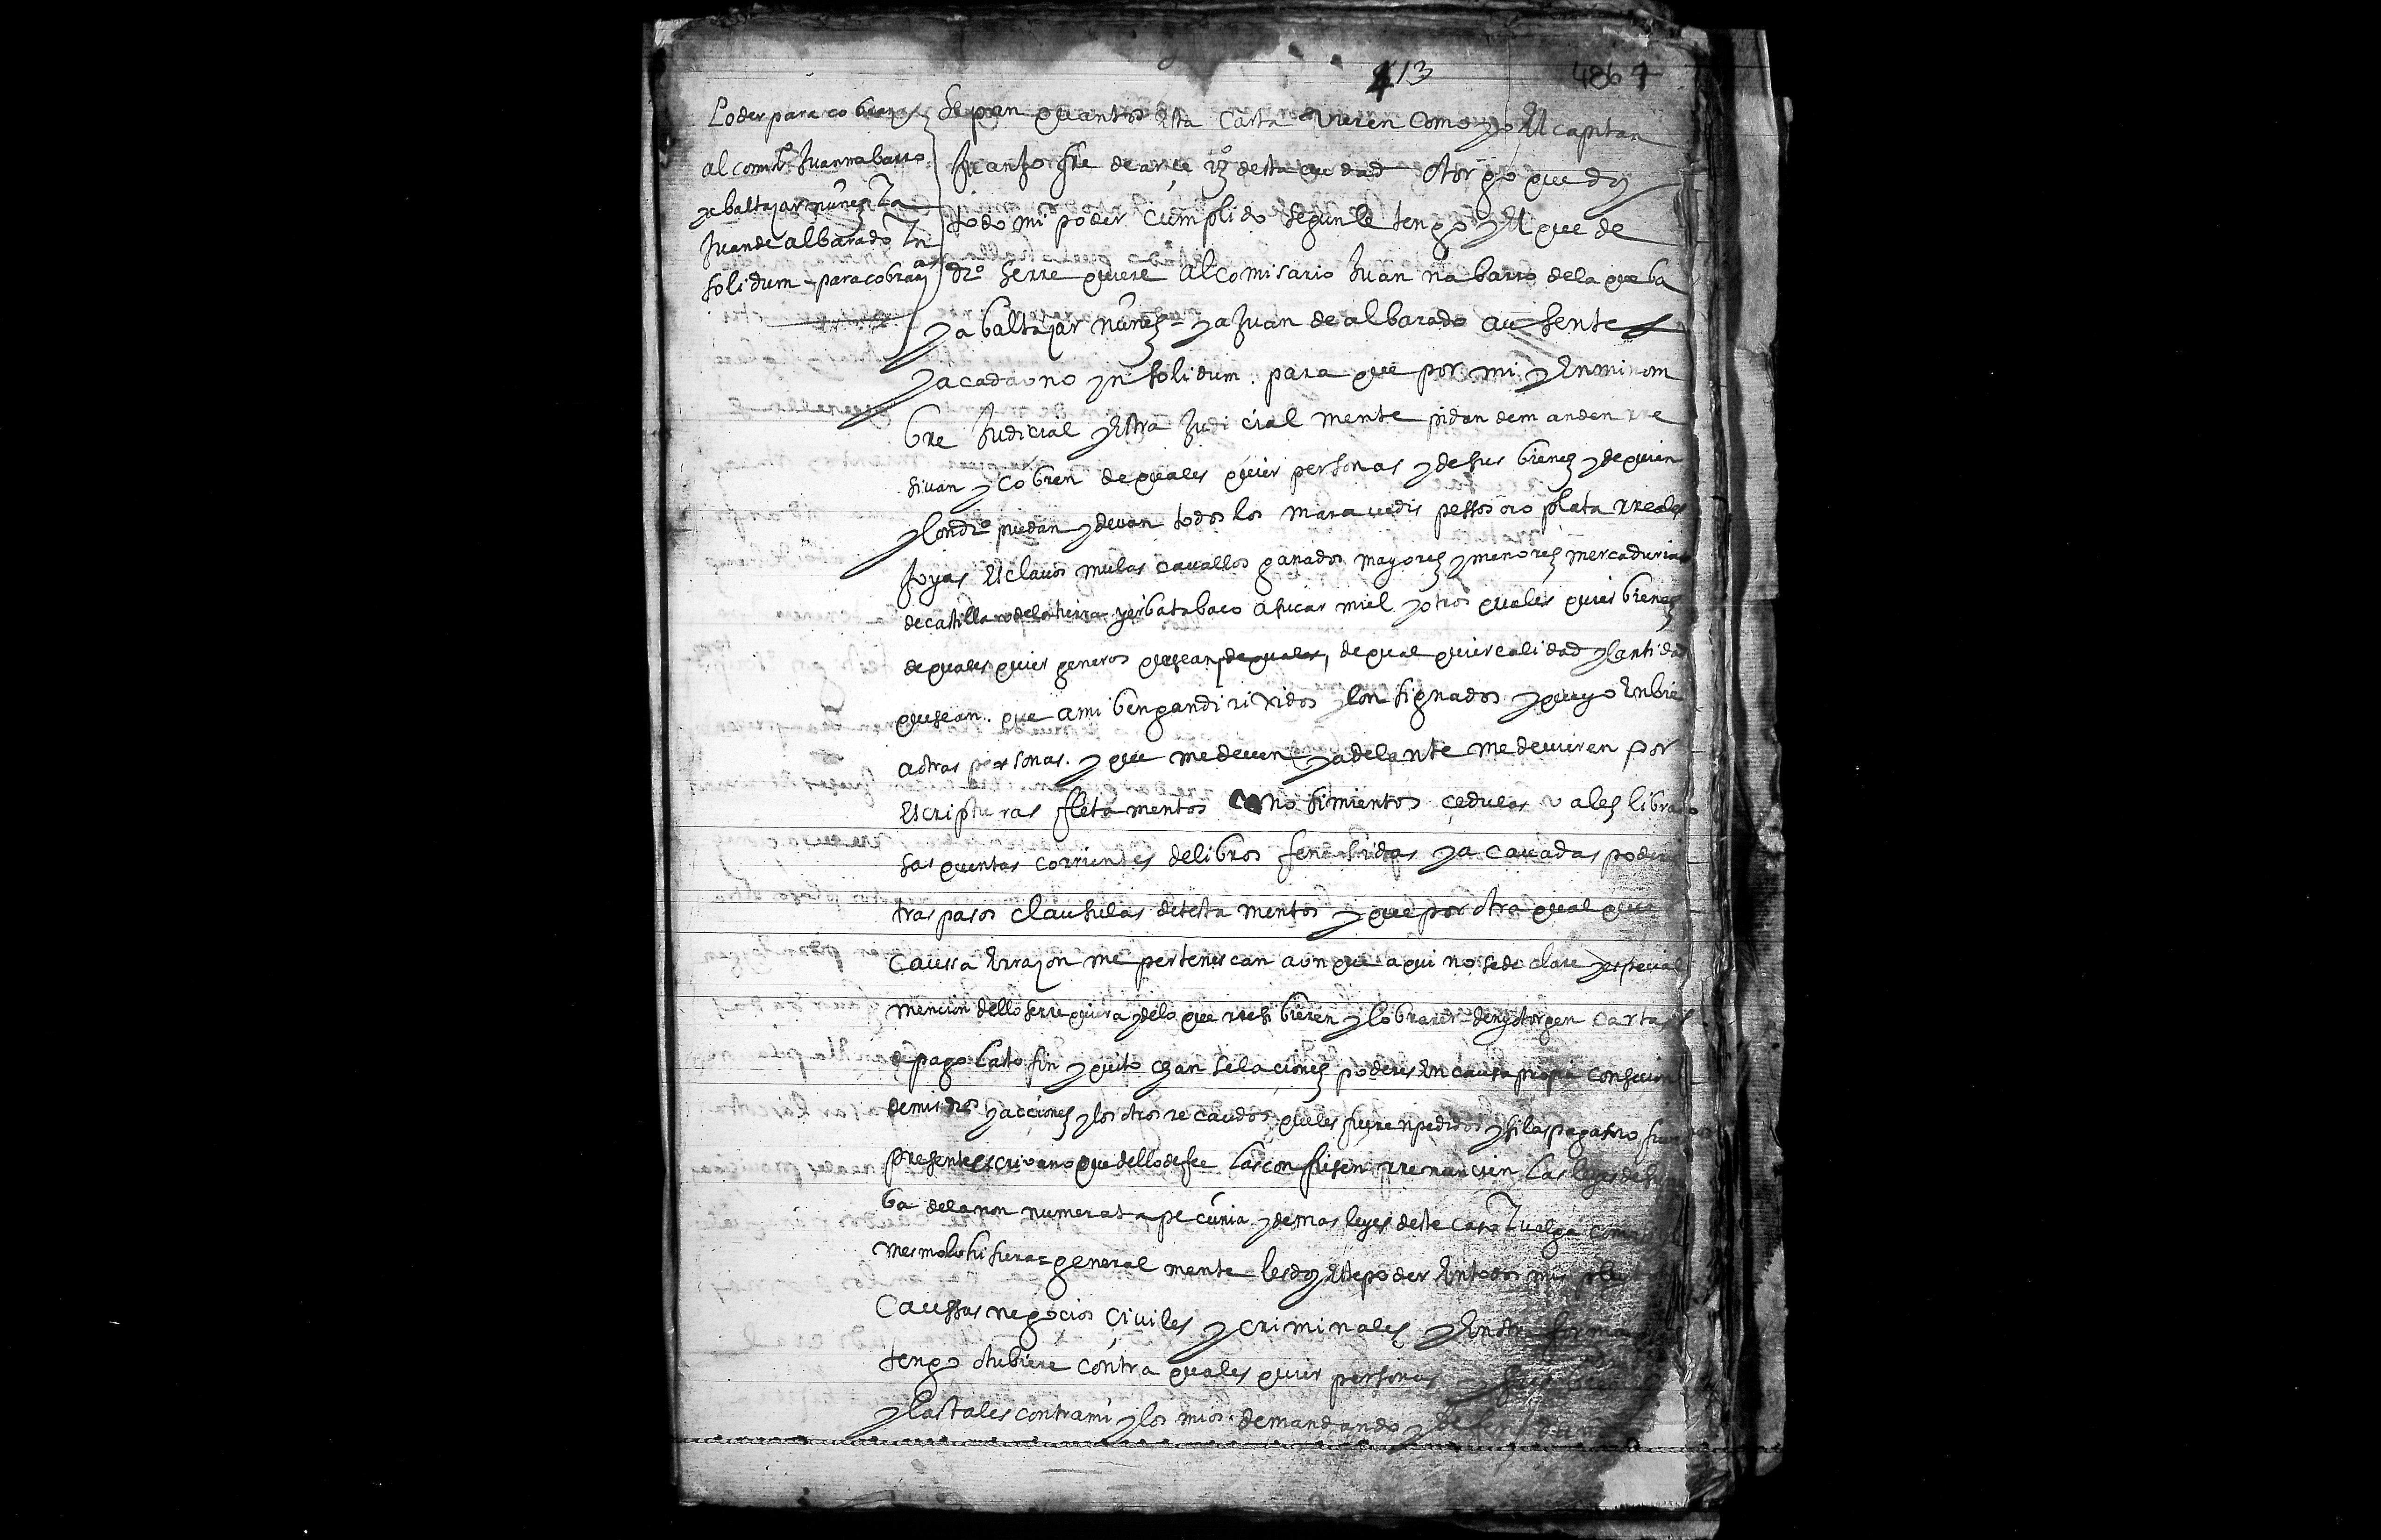 413
4867
Poder para cobrar
al comis.o Juan nabarro
y a baltaçar nuñez
Juan de albarado yn
solidum - para cobrar
Sepan quantos esta carta vieren como yo El capitan
de arce vzº desta ciudad otorgo que doy
todo mi poder cumplido segun le tengo y El que de
drº se rrequiere al comisario Juan nabarro de la queba
y a baltaçar nuñez y a Juan de albarado ausentes
y a cada uno yn solidum. para que por mi y En mi nom
bre Judicial y Estra Judicialmente pidan demanden rre
sivan y cobren de quales quier personas y de sus bienes y de quien
y con drº puedan y devan todos los maravedis pessos oro plata rreales
Joyas Esclavos mulas cavallos ganados mayores y menores mercadurias
de castilla o de la tierra yerba tabaco asucar miel y otros quales quier bienes
de quales quier generos que sean de qual quier calidad y cantidad
que sean. que a mi bengan dirixidos y consignados y que yo Enbie
a otras personas. y que me deven y adelante me devieren por
Escripturas fletamentos conosimientos çedulas vales libran
sas quentas corrientes de libros fenesidas y acavadas poderes
traspasos clausulas de testamentos y que por otra qual quier
caussa E rrazon me pertenescan aunque aqui no se declare y especial
mencion dello se rrequiera y de lo que rresibieren y cobraren den y otorguen cartas
de pago lasto fin y quito chanselaciones poderes En causa propia con
de mis dros y acciones y los otros recaudos que les fueren pedidos y si las pagas no
presente escrivano que dello de fee las confiesen rrenuncien las leyes de
ba de la non numerata pecunia y demas leyes deste caso y valga como
mesmo lo hisiera = generalmente les doy Este poder En todos mis
caussas negocios çiviles y criminales y En otra forma
tengo o tubiere contra quales quier personas y
y las tales contra mi y los mios. demandando y